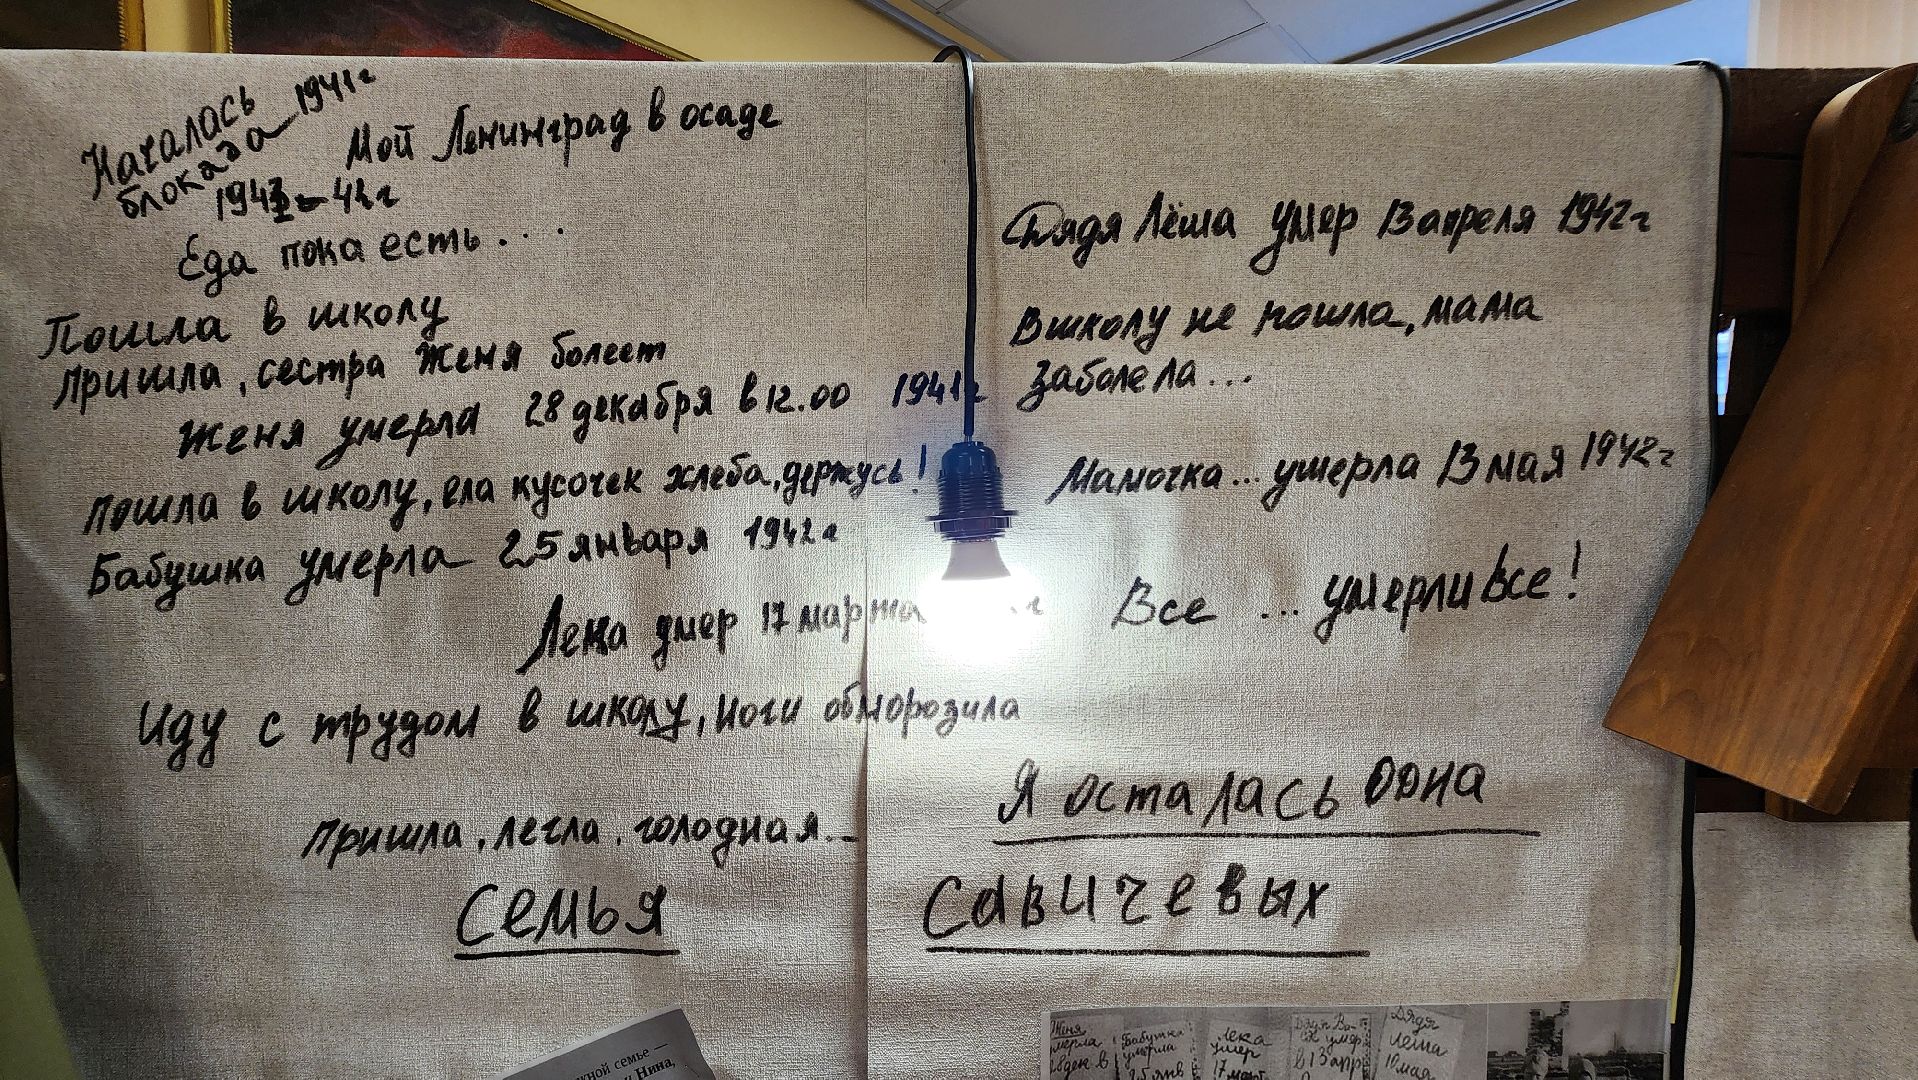 Началась
блокада 1941г
Мой Ленинград в осаде
1941-42г
Еда пока есть....
Пошла в школу
Пришла, сестра Женя болеет
Женя умерла 28 декабря в 12.00 1941г
Пошла в школу, ела кусочек хлеба, держусь!
Бабушка умерла 25 января 1942г
Лека умер 17 марта г
Иду с трудом в школу, ноги обморозила
Пришла, легла, голодная...
Дядя Лёша умер 13 апреля 1942г
В школу не пошла, мама
заболела...
Мамочка... умерла 13 мая 1942г
Все ... умерли все!
Я осталась одна
Семья Савичевых
жной семье —
Нина,
Женя
умерла
28 ден в
Бабушка
умерла
25 янв
Лека
умер
17 март
Дядя Ва-
ся умер
в 13 апр
Дядя
Леша
10 мая